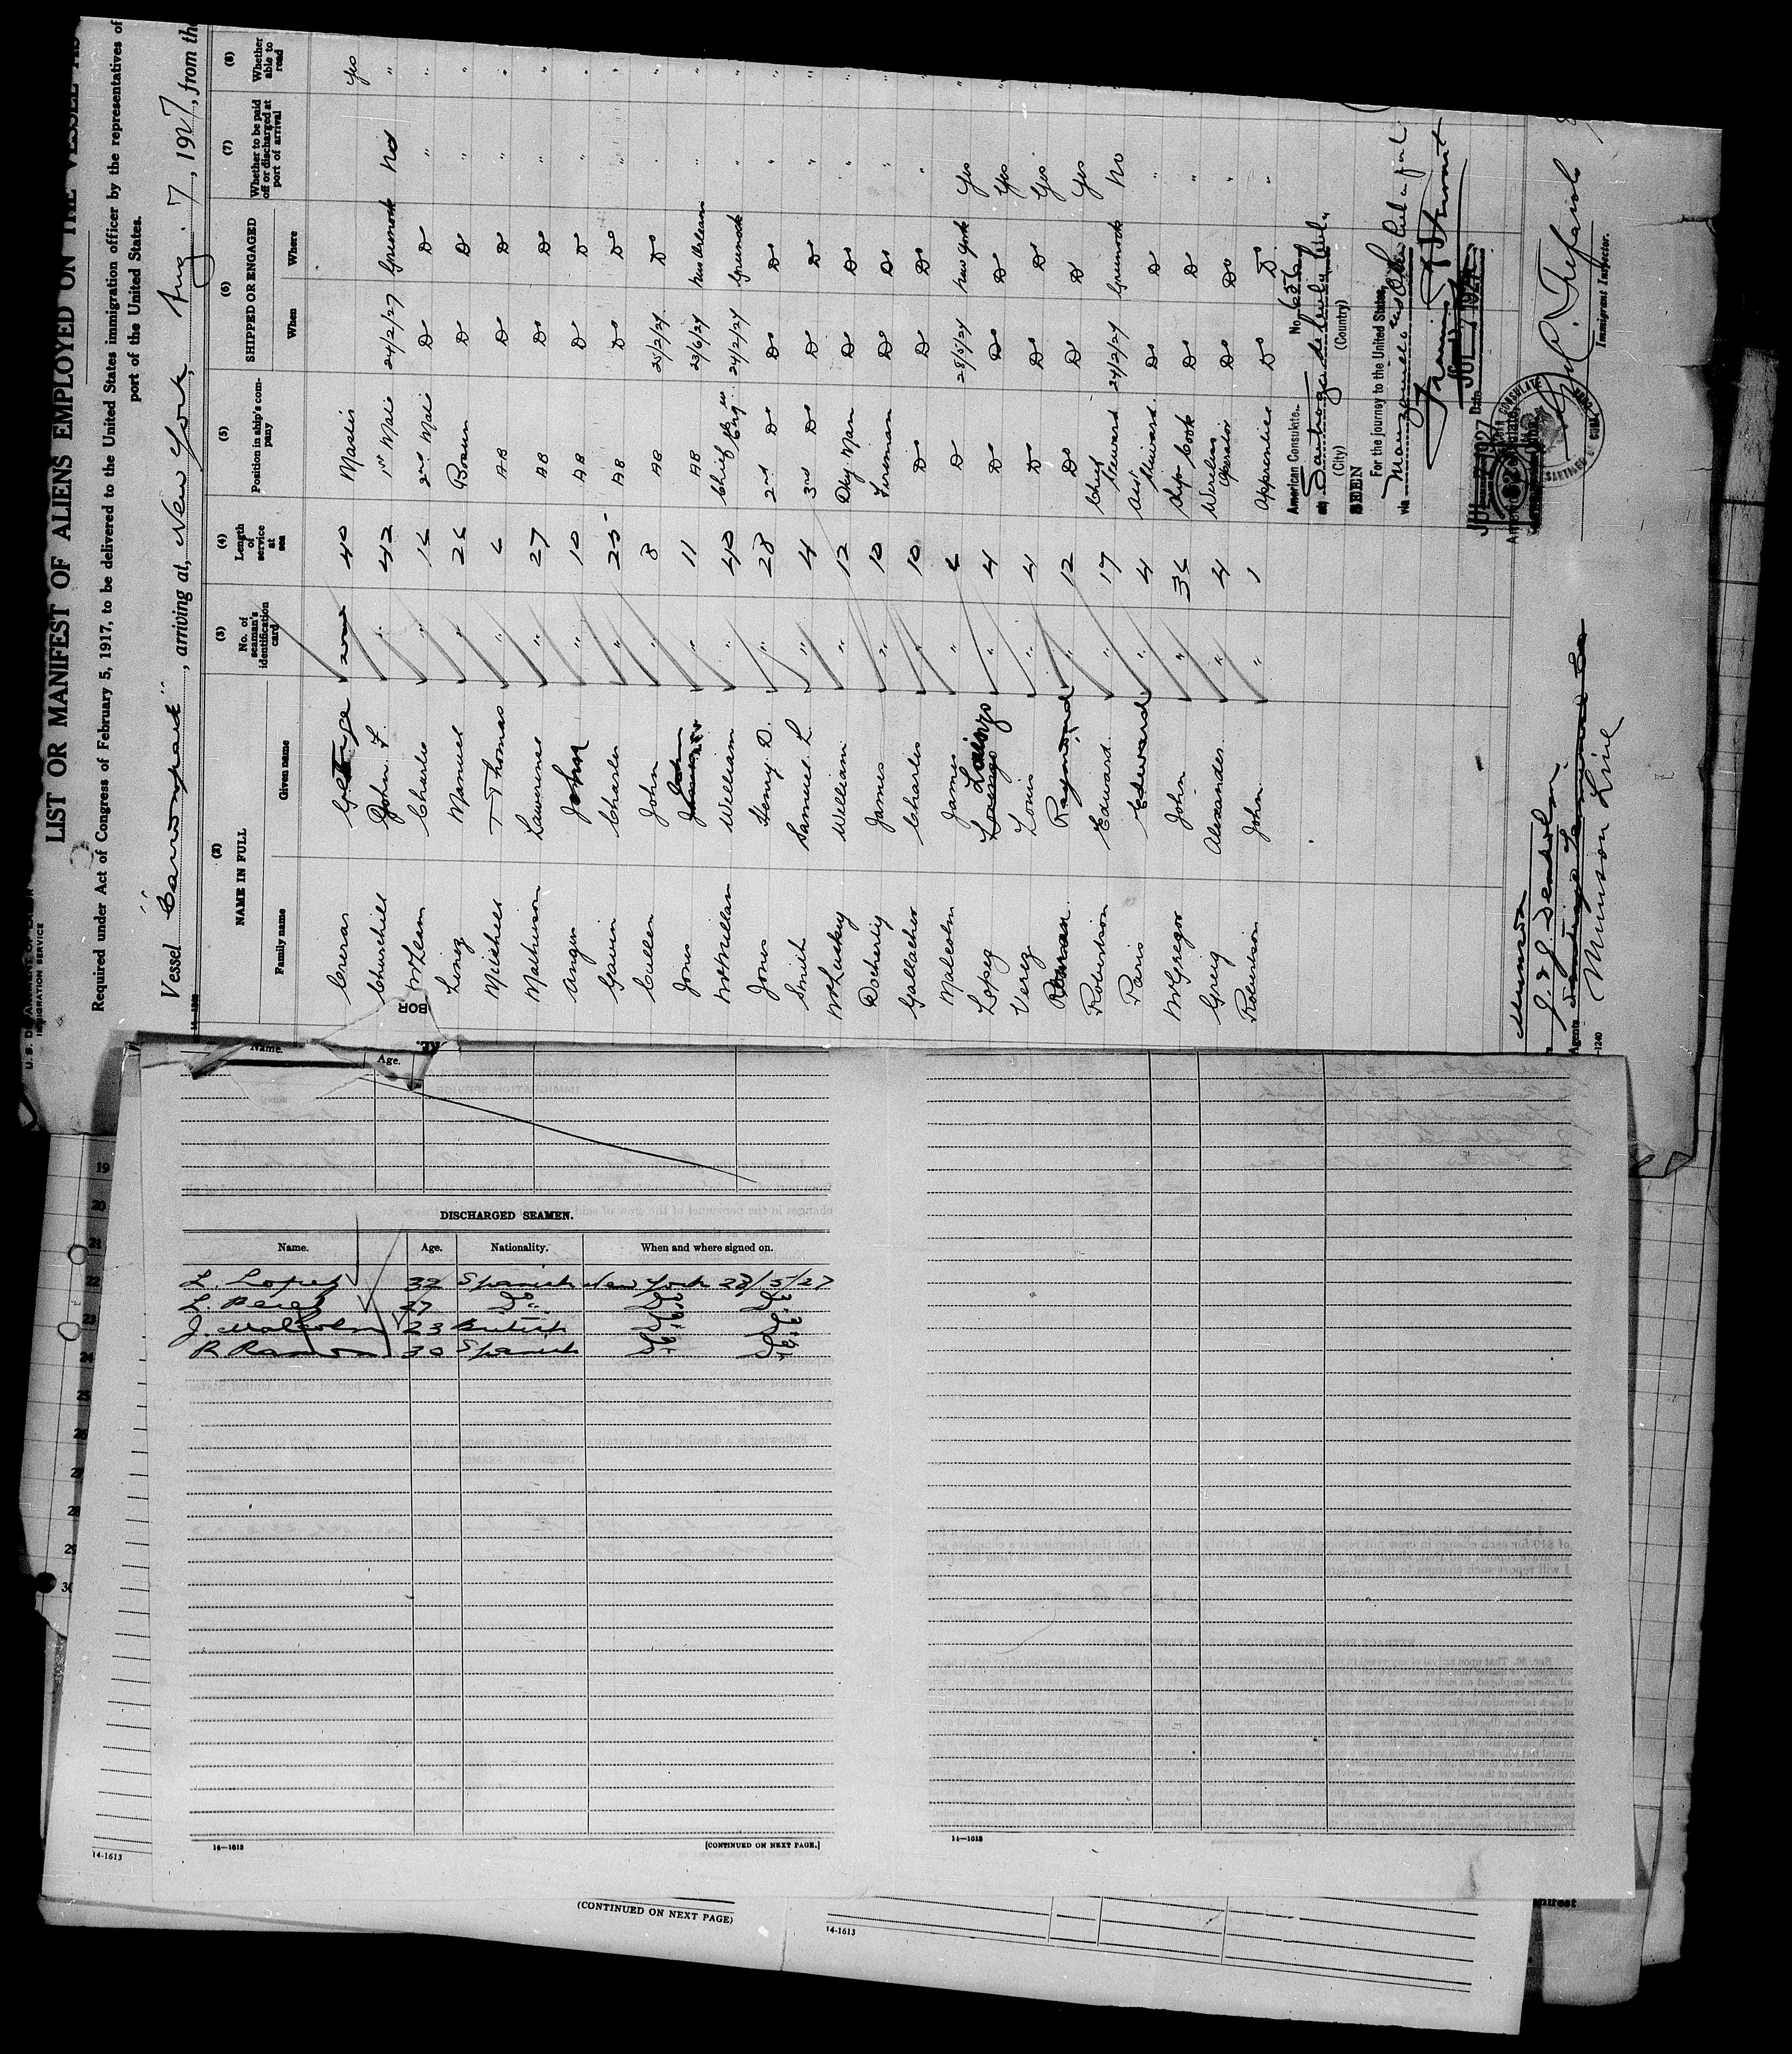 LIST OR MANIFEST OF ALIENS EMPLOYED ON THE VESSEL AS
Required under Act of Congress of February 5, 1917, to be delivered to the United States immigration officer by the representatives of
port of the United States.
IMMIGRATION SERVICE
Vessel , arriving at, New York, Aug. 7, 1927, from the
(2) (3) (4) (5) (6) (7) (8)
NAME IN FULL No. of seaman's identification card Length of service at sea Position in ship's company SHIPPED OR ENGAGED Whether to be paid off or discharged at port of arrival Whether able to read
Family name Given name When Where
Crerar George none 40 Master Yes
Churchill John F. " 42 1st Mate 24/2/27 Greenock No "
McLean Charles " 16 2nd Mate Do Do " "
Linez Manuel " 26 Bosun Do Do " "
Mitchell Thomas " 6 AB Do Do " "
Mathieson Lawrence " 27 AB Do Do " "
Angen John " 10 AB Do Do " "
Gavin Charles " 25 AB Do Do " "
Cullen John " 8 AB 25/2/27 Do " "
Jones John " 11 AB 23/6/27 New Orleans " "
McMillan William " 40 Chief Eng'er 24/2/27 Greenock " "
Jones Henry D. " 28 2nd Do Do Do " "
Smith Samuel L. " 4 3rd Do Do Do " "
McLuskey William " 12 Dky Man Do Do " "
Docherty James " 10 Fireman Do Do " "
Gallacher Charles " 10 Do Do Do " "
Malcolm James " 6 Do 28/5/27 New York Yes "
Lopez Lorenzo " 4 Do Do Do Yes "
Verez Louis " 4 Do Do Do Yes "
Raymond " 12 Do Do Do Yes "
Robertson Edward " 17 Chief Steward 24/2/27 Greenock No "
Paris Edward " 4 Ast Steward Do Do " "
McGregor John " 36 Ship Cook Do Do " "
Greig Alexander " 4 Wireless Operator Do Do " "
Robertson John " 1 Apprentice Do Do " "
American Consulate
at Santiago de Cuba, Cuba
(City) (Country)
SEEN
For the journey to the United States,
via Manzanillo
Date JUL 1927
Immigrant Inspector.
Agents
Munson Line
Name. Age.
DISCHARGED SEAMEN.
Name. Age. Nationality. When and where signed on.
L. Lopez 32 Spanish New York 28/5/27
L. Perez 27 Do. Do Do
J. Malcolm 23 British Do Do
R Ramon 30 Spanish Do Do
14—1613 [CONTINUED ON NEXT PAGE.]
14—1613
19
20
21
22
23
24
25
26
27
28
29
30
14-1613
(CONTINUED ON NEXT PAGE)
14-1613